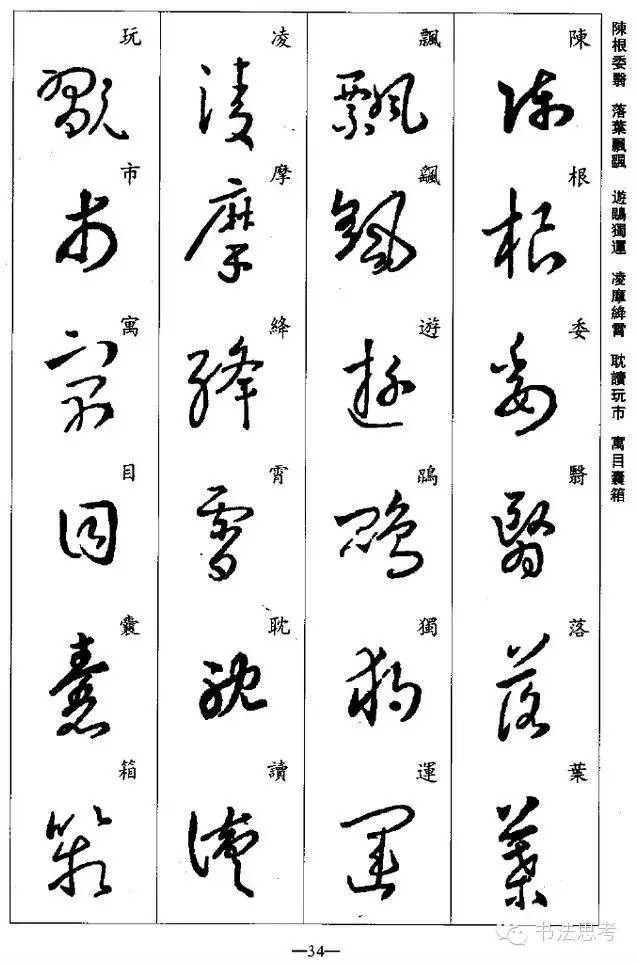 陳根委翳 落葉飄颻 遊鵾獨運 凌摩絳霄 耽讀玩市 寓目囊箱
陳根委翳落葉
飄颻遊鵾獨運
凌摩絳霄耽讀
玩市寓目囊箱
—34—
书法思考